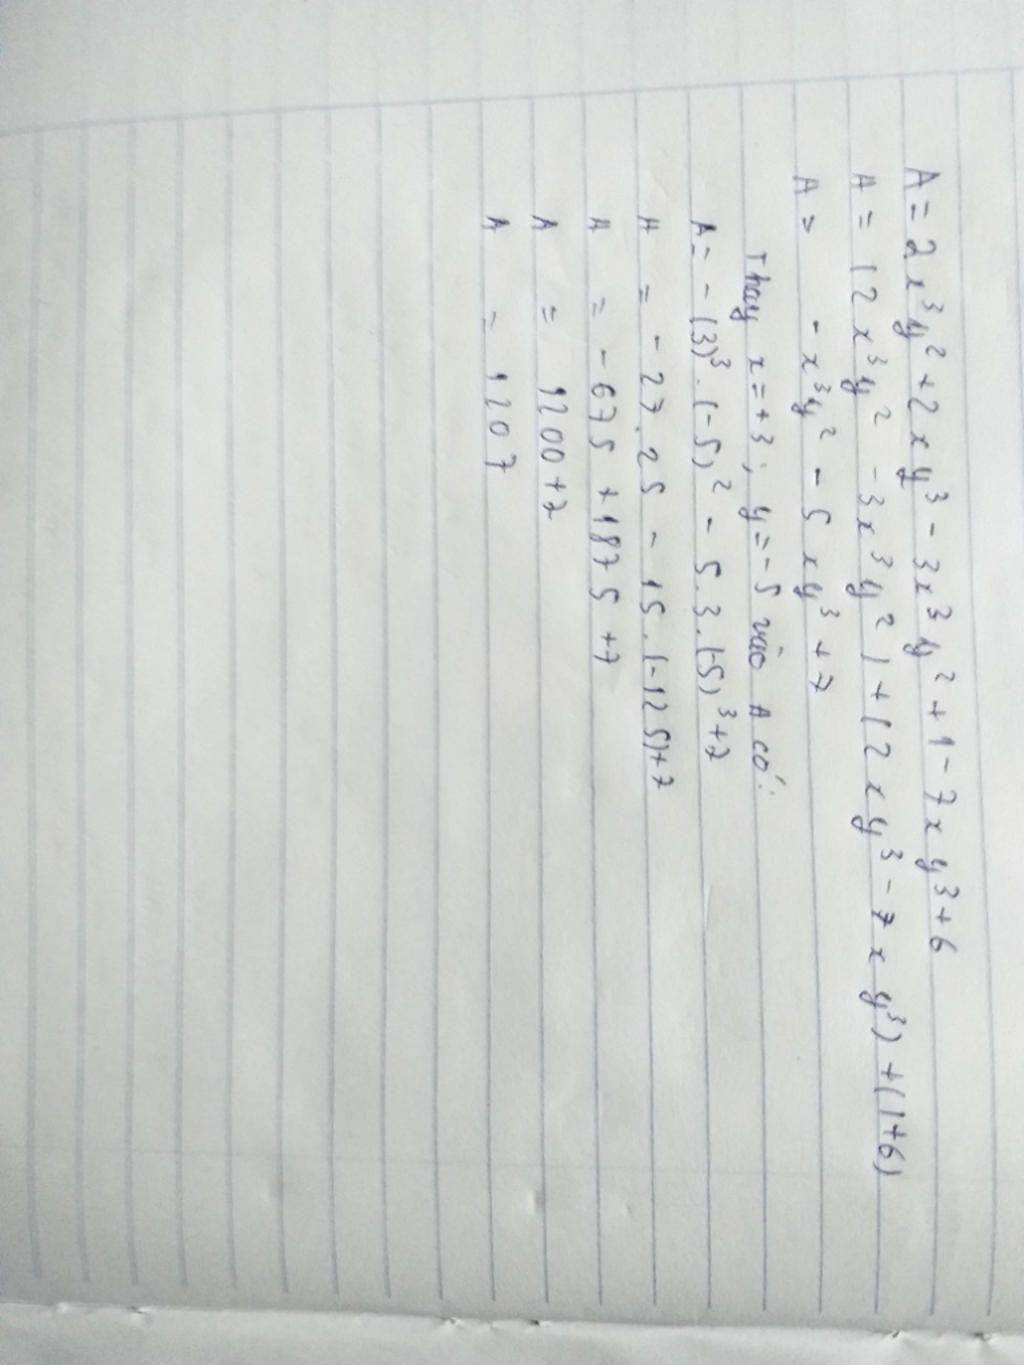 A = 2x³y² + 2xy³ - 3x³y² + 1 - 7xy³ + 6
A = (2x³y² - 3x³y²) + (2xy³ - 7xy³) + (1+6)
A = - x³y² - 5xy³ + 7
Thay x = +3; y = -5 vào A có:
A = - (3)³ . (-5)² - 5.3.(-5)³ + 7
A = - 27.25 - 15.(-125) + 7
A = - 675 + 1875 + 7
A = 1200 + 7
A = 1207